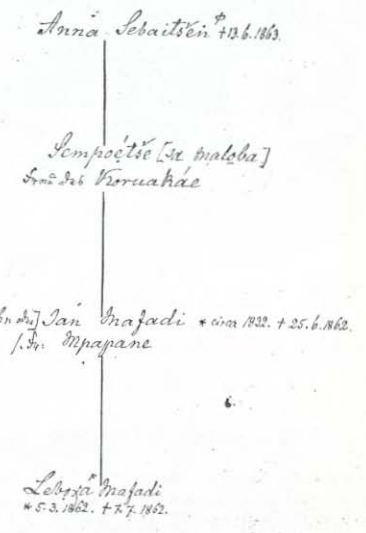 Anna Sebaitšeñ +13.6.1863.
Sempoétše [ maloba]
Frau des Koruakáe
Jan Mafadi * circa 1832. + 25.6.1862.
Mpapane
Leboxa Mafadi
* 5.3.1862. + 7.7.1862.